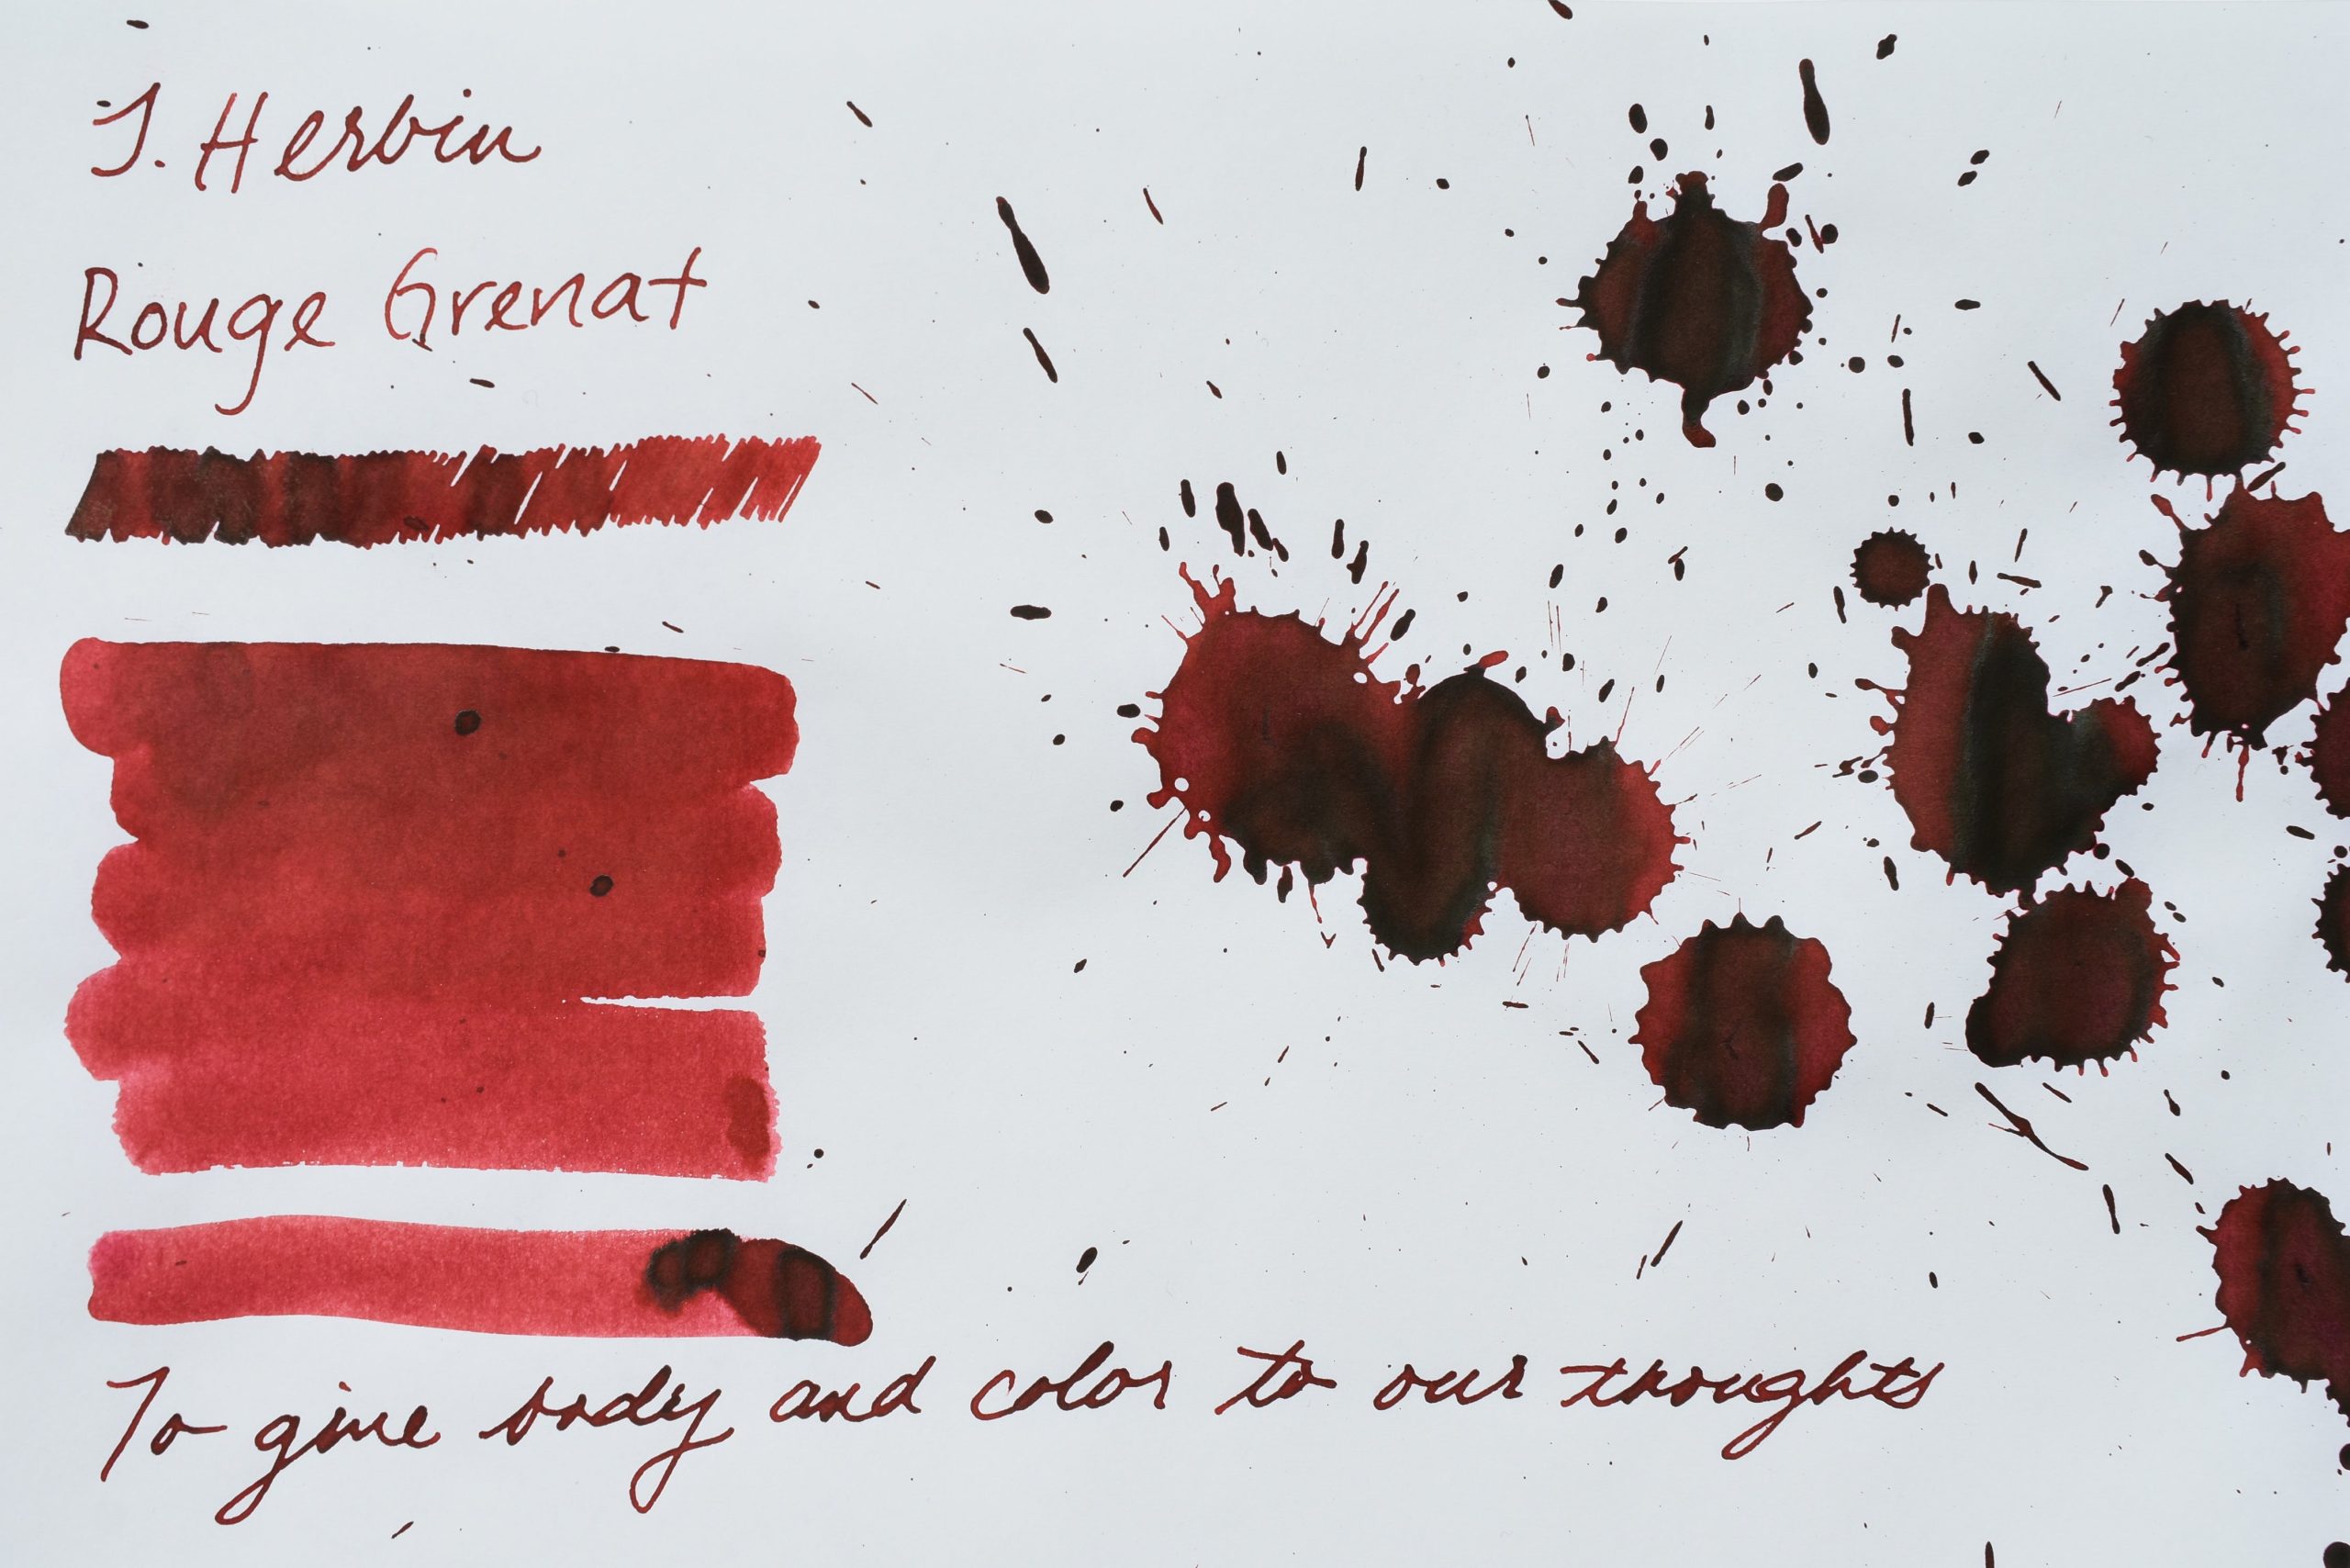 J. Herbin
Rouge Grenat
To give body and color to our thoughts